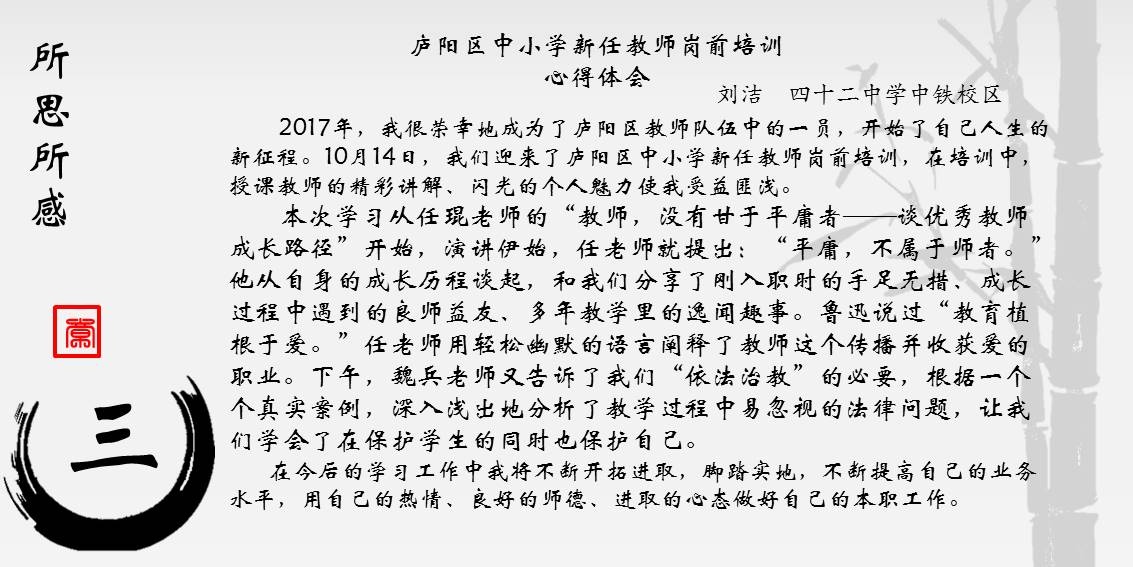 所思所感
三
庐阳区中小学新任教师岗前培训
心得体会
刘洁 四十二中学中铁校区
2017年，我很荣幸地成为了庐阳区教师队伍中的一员，开始了自己人生的
新征程。10月14日，我们迎来了庐阳区中小学新任教师岗前培训，在培训中，
授课教师的精彩讲解、闪光的个人魅力使我受益匪浅。
本次学习从任琨老师的“教师，没有甘于平庸者——谈优秀教师
成长路径”开始，演讲伊始，任老师就提出：“平庸，不属于师者。”
他从自身的成长历程谈起，和我们分享了刚入职时的手足无措、成长
过程中遇到的良师益友、多年教学里的逸闻趣事。鲁迅说过“教育植
根于爱。”任老师用轻松幽默的语言阐释了教师这个传播并收获爱的
职业。下午，魏兵老师又告诉了我们“依法治教”的必要，根据一个
个真实案例，深入浅出地分析了教学过程中易忽视的法律问题，让我
们学会了在保护学生的同时也保护自己。
在今后的学习工作中我将不断开拓进取，脚踏实地，不断提高自己的业务
水平，用自己的热情、良好的师德、进取的心态做好自己的本职工作。